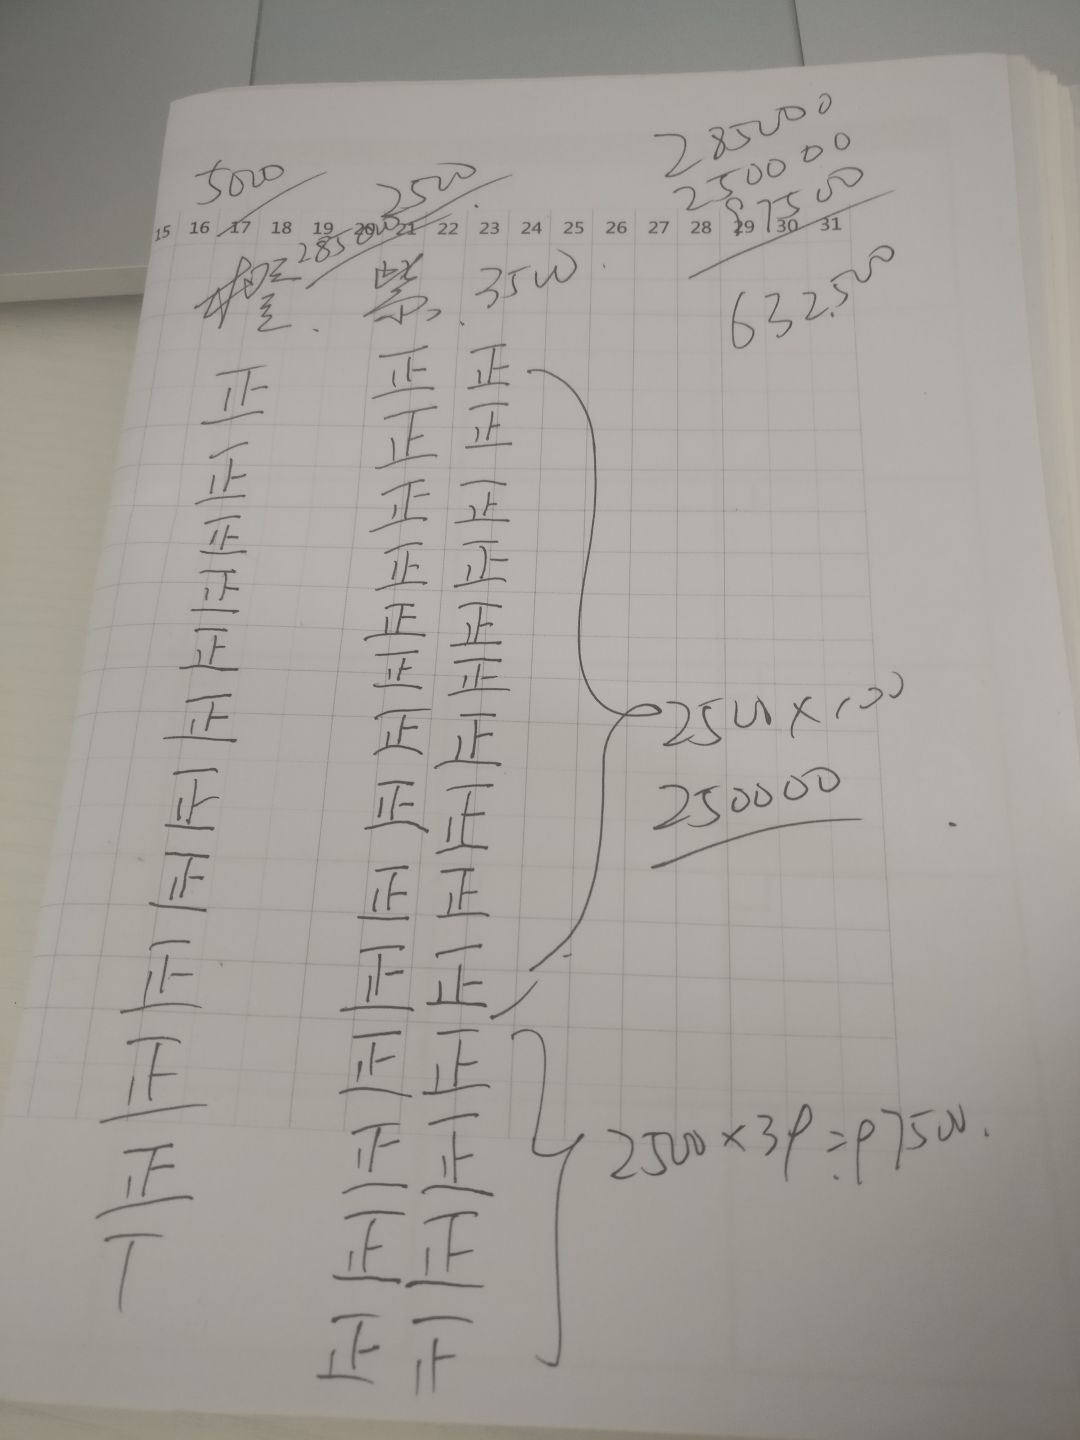 5000 2500 285000
250000
97500
15 16 17 18 19 20 21 22 23 24 25 26 27 28 29 30 31
285000
632.500
3500
正 正 正
正 正 正
正 正 正
正 正 正
正 正 正
正 正 正
正 正 正
正 正 正
正 正 正
正 正 正
正 正 正
正 正
T 正 正
正
2500×100
250000
2500×39=97500.